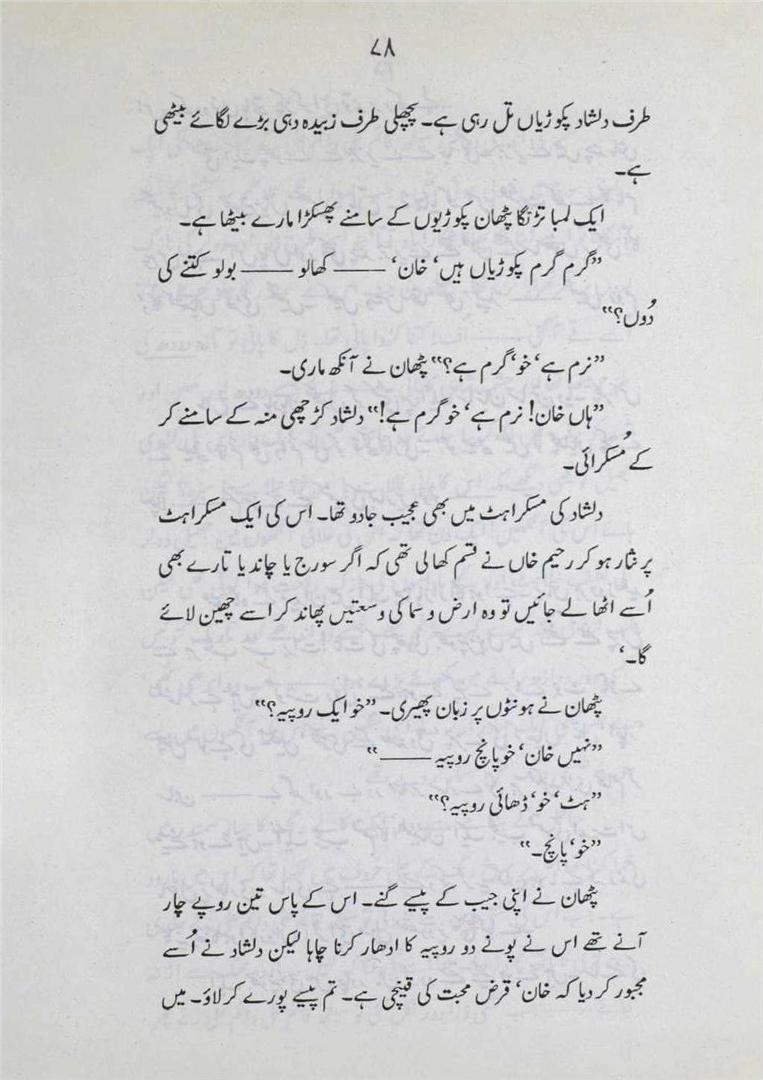 ۷۸
طرف دلشاد پکوڑیاں تل رہی ہے۔ پچھلی طرف زبیدہ دہی بڑے لگائے بیٹھی
ہے۔
ایک لمبا تڑنگا پٹھان پکوڑیوں کے سامنے پھسکڑا مارے بیٹھا ہے۔
”گرم گرم پکوڑیاں ہیں‘ خان‘ ـــــــ کھالو ـــــــ بولو کتنے کی
دُوں؟“
”نرم ہے‘ خو‘ گرم ہے؟“ پٹھان نے آنکھ ماری۔
”ہاں خان! نرم ہے‘ خو گرم ہے!“ دلشاد کڑچھی منہ کے سامنے کر
کے مُسکرائی۔
دلشاد کی مسکراہٹ میں بھی عجیب جادو تھا۔ اس کی ایک مسکراہٹ
پر نثار ہو کر رحیم خاں نے قسم کھالی تھی کہ اگر سورج یا چاند یا تارے بھی
اُسے اٹھا لے جائیں تو وہ ارض و سما کی وسعتیں پھاند کر اسے چھین لائے
گا۔‘
پٹھان نے ہونٹوں پر زبان پھیری۔ ”خو ایک روپیہ؟“
”نہیں خان‘ خو پانچ روپیہ ـــــــ“
”ہٹ‘ خو‘ ڈھائی روپیہ؟“
”خو‘ پانچ۔“
پٹھان نے اپنی جیب کے پیسے گنے۔ اس کے پاس تین روپے چار
آنے تھے اس نے پونے دو روپیہ کا ادھار کرنا چاہا لیکن دلشاد نے اُسے
مجبور کر دیا کہ خان‘ قرض محبت کی قینچی ہے۔ تم پیسے پورے کر لاؤ۔ میں